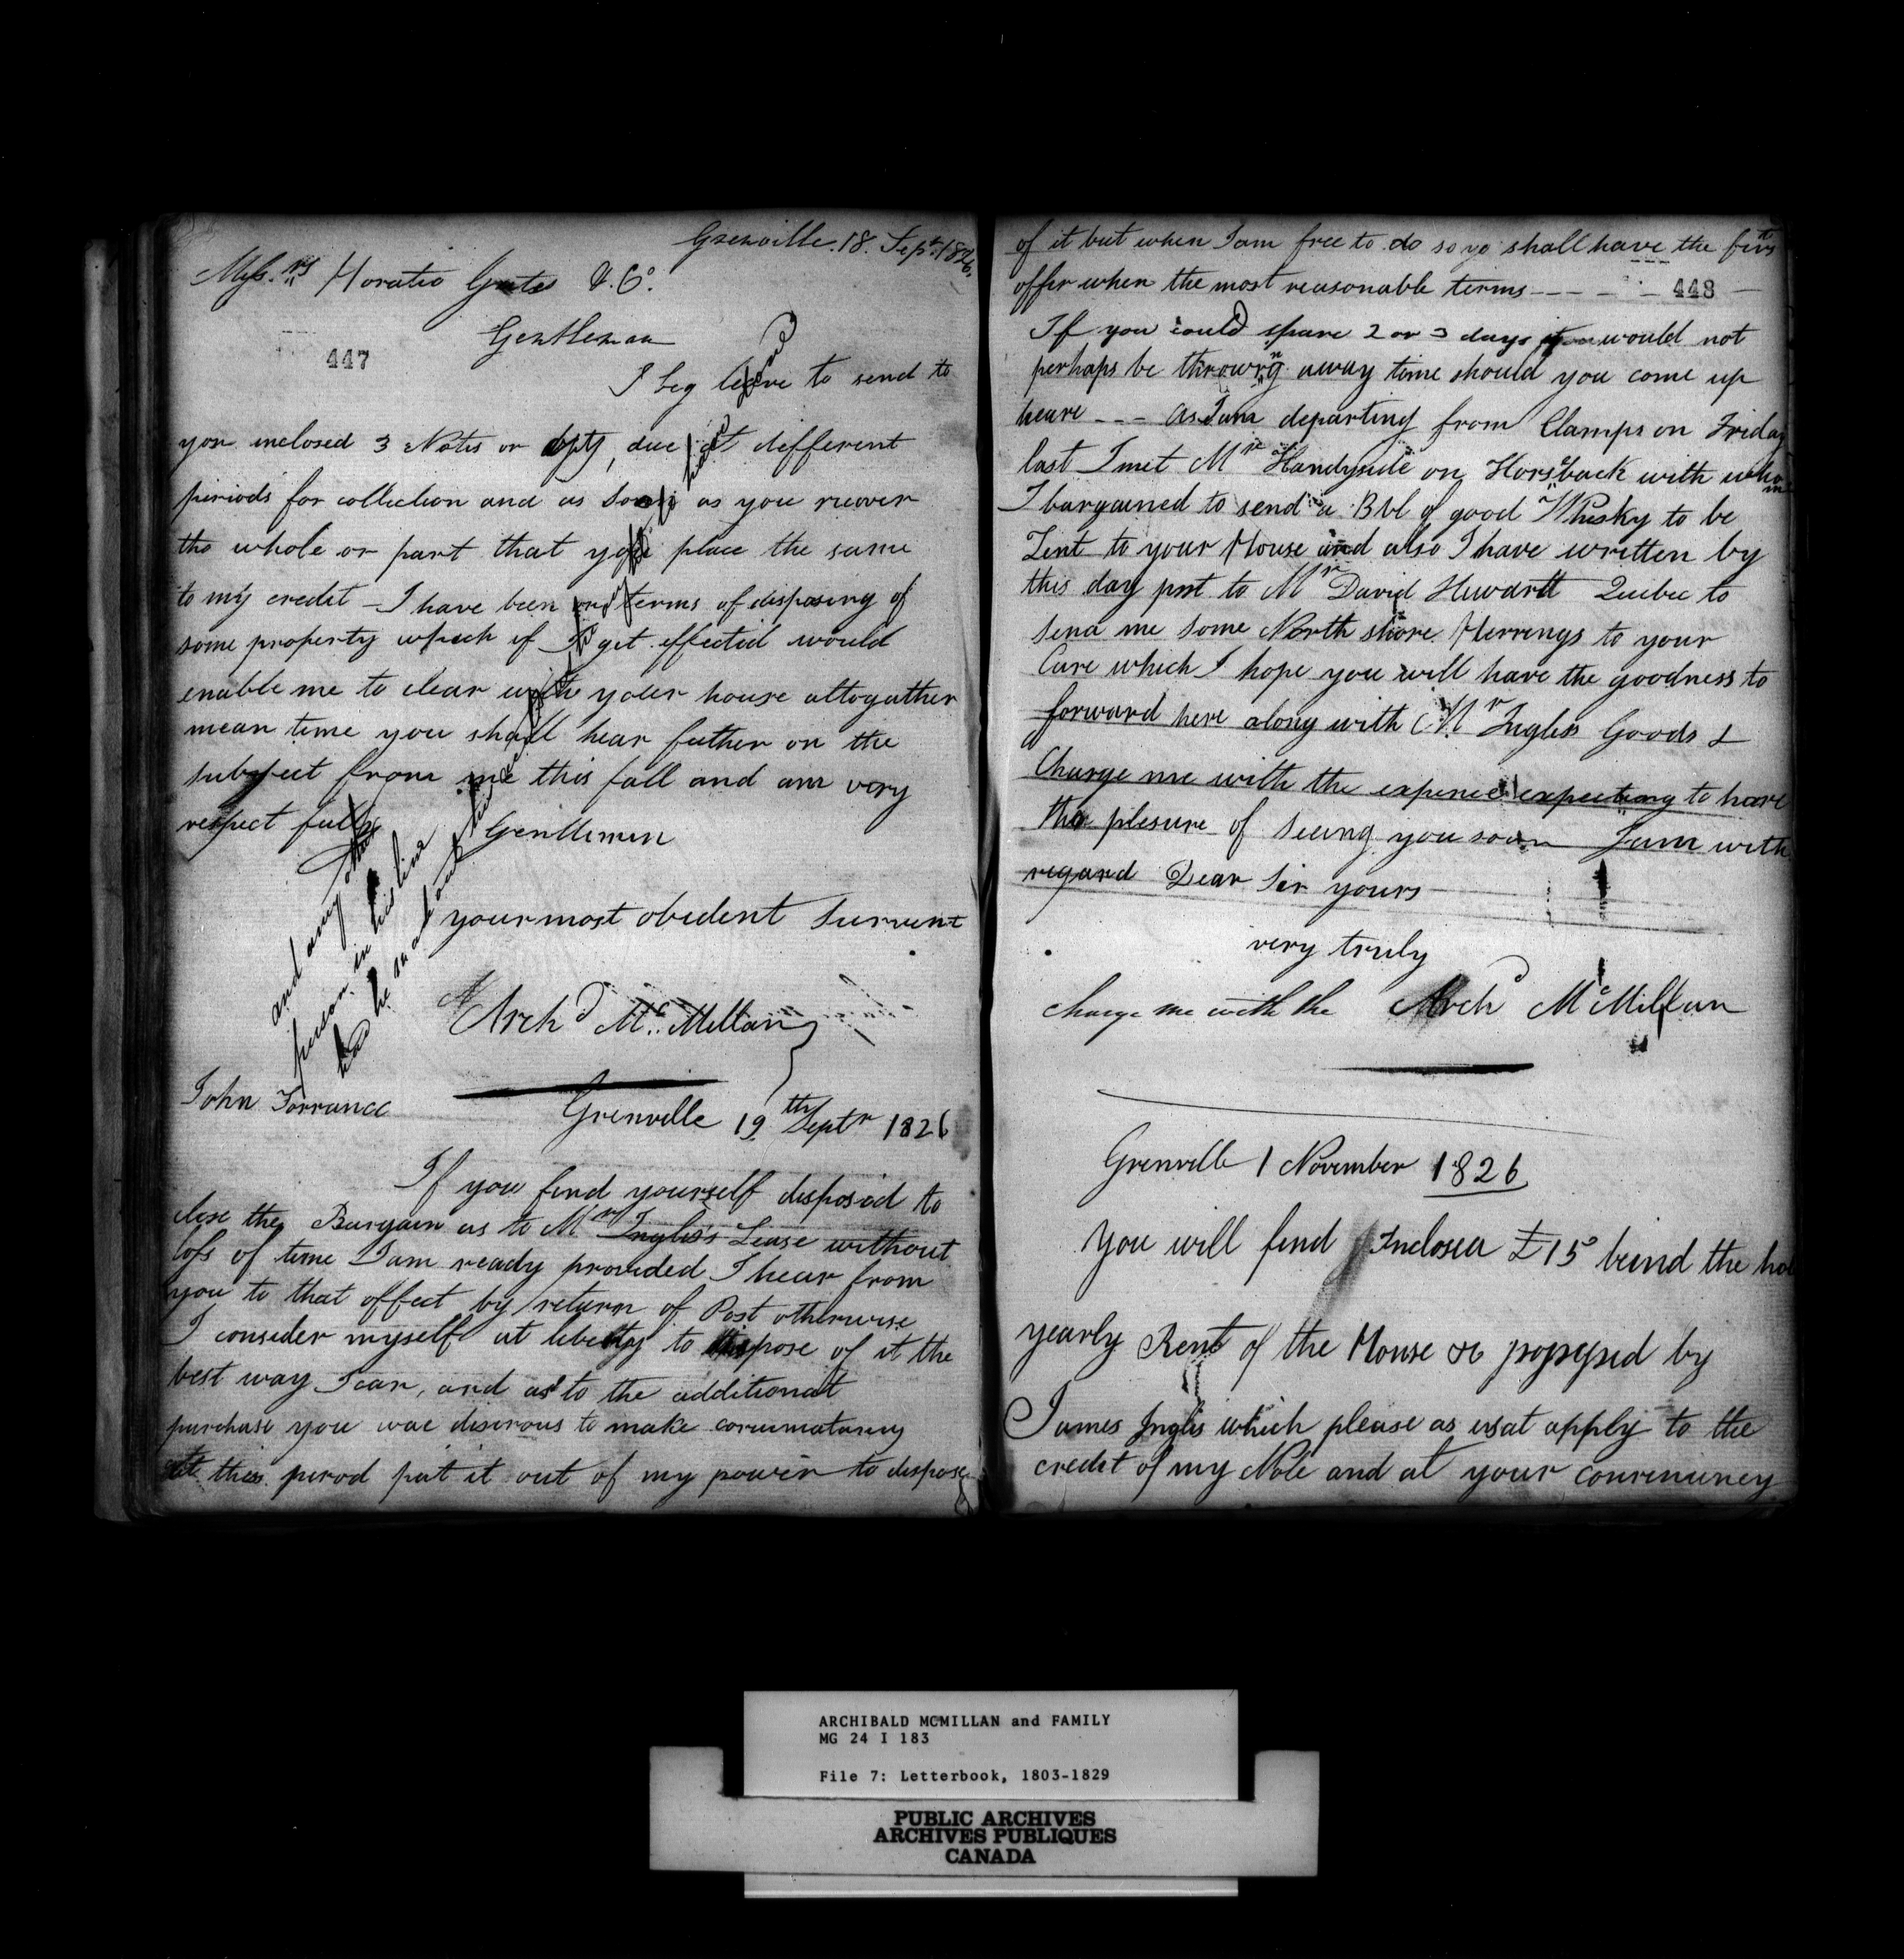 Grenville. 18. Sept. 1826.
Mess.rs Horatio Gates & Co.
Gentleman
447
I beg leave to send to
you inclosed 3 Notes or due at defferent
periods for collection and as soon as you recover
the whole or part that you place the same
to my credit - I have been terms of disposing of
some property which if I get effected would
enable me to clear with your house altogather
mean time you shall hear futher on the
subject from me this fall and am very
respect fully
Gentlemen
your most obident Survent
Archd Mc. Millan
and any other
person in his line
John Torrance
Grenville 19th Septr 1826
If you find yourself disposed to
close the Bargain as to Mr Inglis's Lease without
loss of time I am ready provided I hear from
you to that effect by return of Post otherwise
I consider myself at liberty to dispose of it the
best way I can, and as to the additional
purchase you wae disirous to make
at this perod put it out of my power to dispose
of it but when I am free to do so yo shall have the first
offer when the most reasonable terms - - - - - 448
If you could spare 2 or 3 days it would not
perhaps be throwing away time should you come up
heare - - - As I am departing from Clamps on Friday
last I met Mr Handyside on Horseback with whom
I bargained to send a Bbl of good Whisky to be
Sent to your House and also I have written by
this day post to Mr David Quebec to
send me some North shore Herrings to your
Care which I hope you will have the goodness to
forward here along with Mr Ingliss Goods &
Charge me with the expence expecting to have
the plesure of seeing you soon I am with
regard Dear Sir yours
very truly
charge me with the Archd McMillan
Grenville 1 November 1826
You will find Inclosed £15 beind the
yearly Rent of the House &c possessed by
James Inglis which please as usal apply to the
credit of my Note and at your convenuncy
ARCHIBALD MCMILLAN and FAMILY
MG 24 I 183
File 7: Letterbook, 1803-1829
PUBLIC ARCHIVES
ARCHIVES PUBLIQUES
CANADA